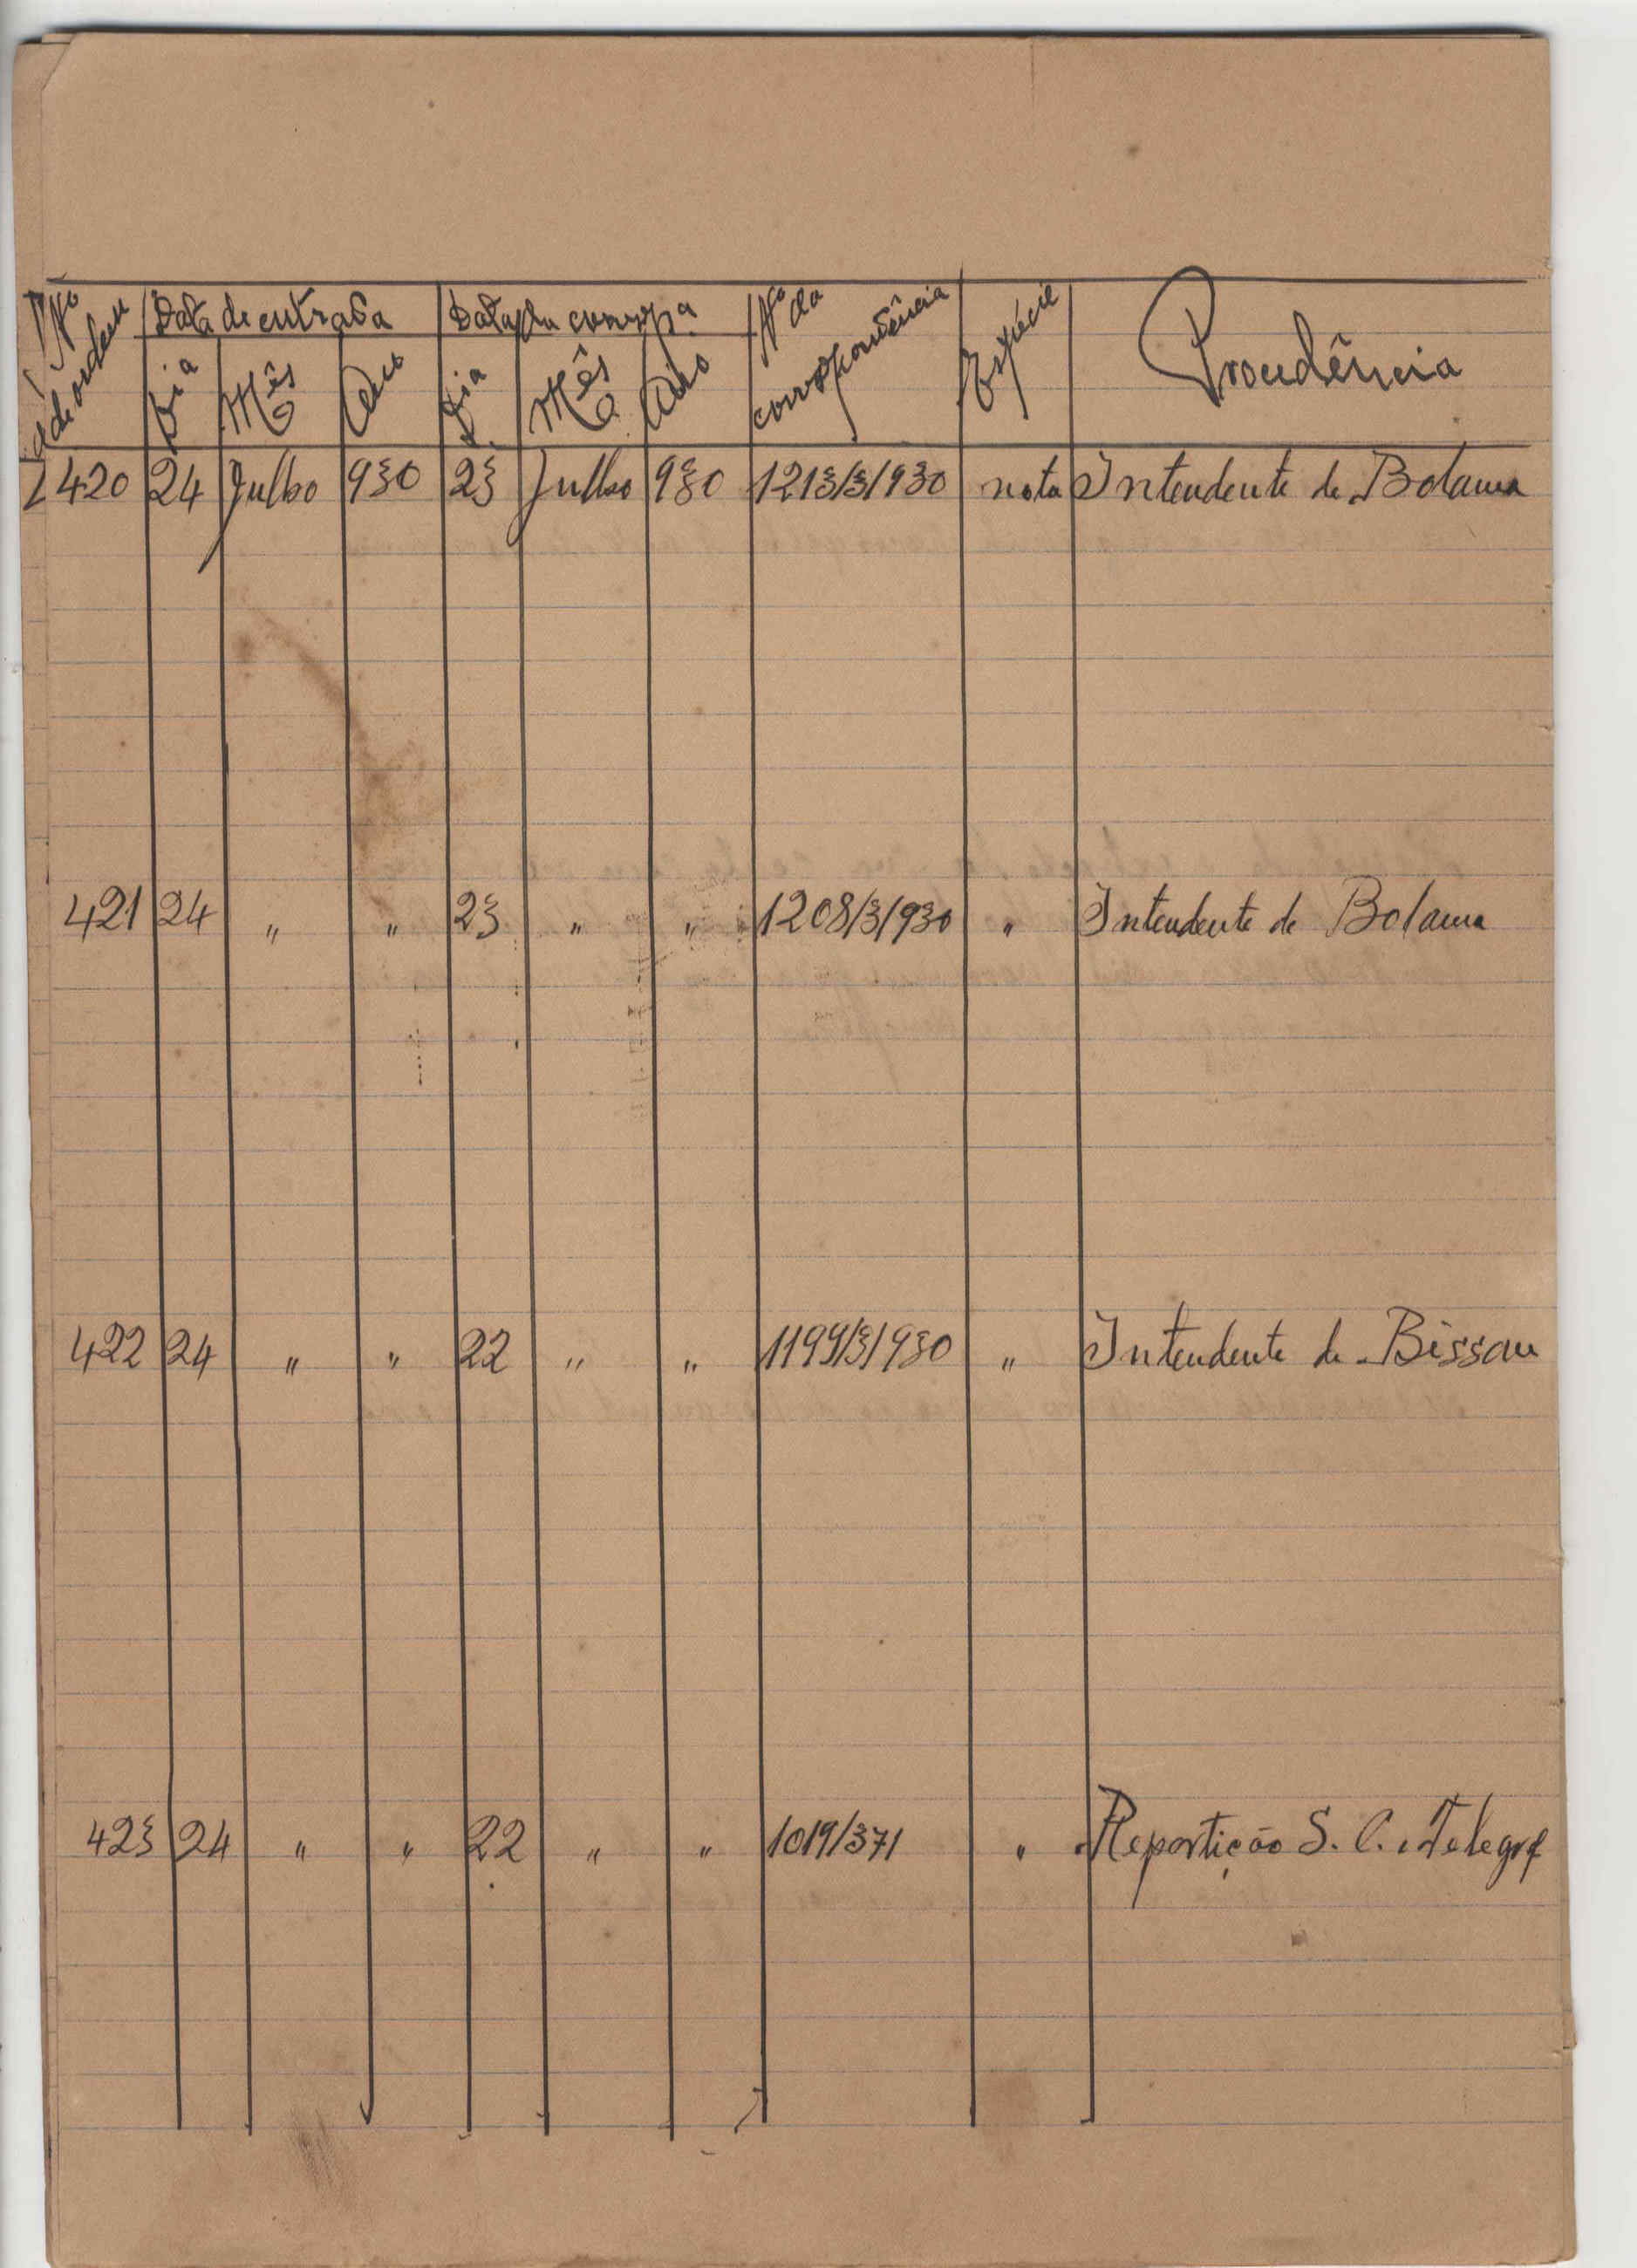 Nº de ordem Data de entrada Data da corresp.a Nº da correspondência Espécie Procedência
Dia Mês Ano Dia Mês Ano
420 24 Julho 930 23 Julho 930 1213/3/930 nota Intendente de Bolama
421 24 " " 23 " " 1208/3/930 " Intendente de Bolama
422 24 " " 22 " " 1199/3/930 " Intendente de Bissau
423 24 " " 22 " " 1019/371 " Repartição S. C. Telegrf